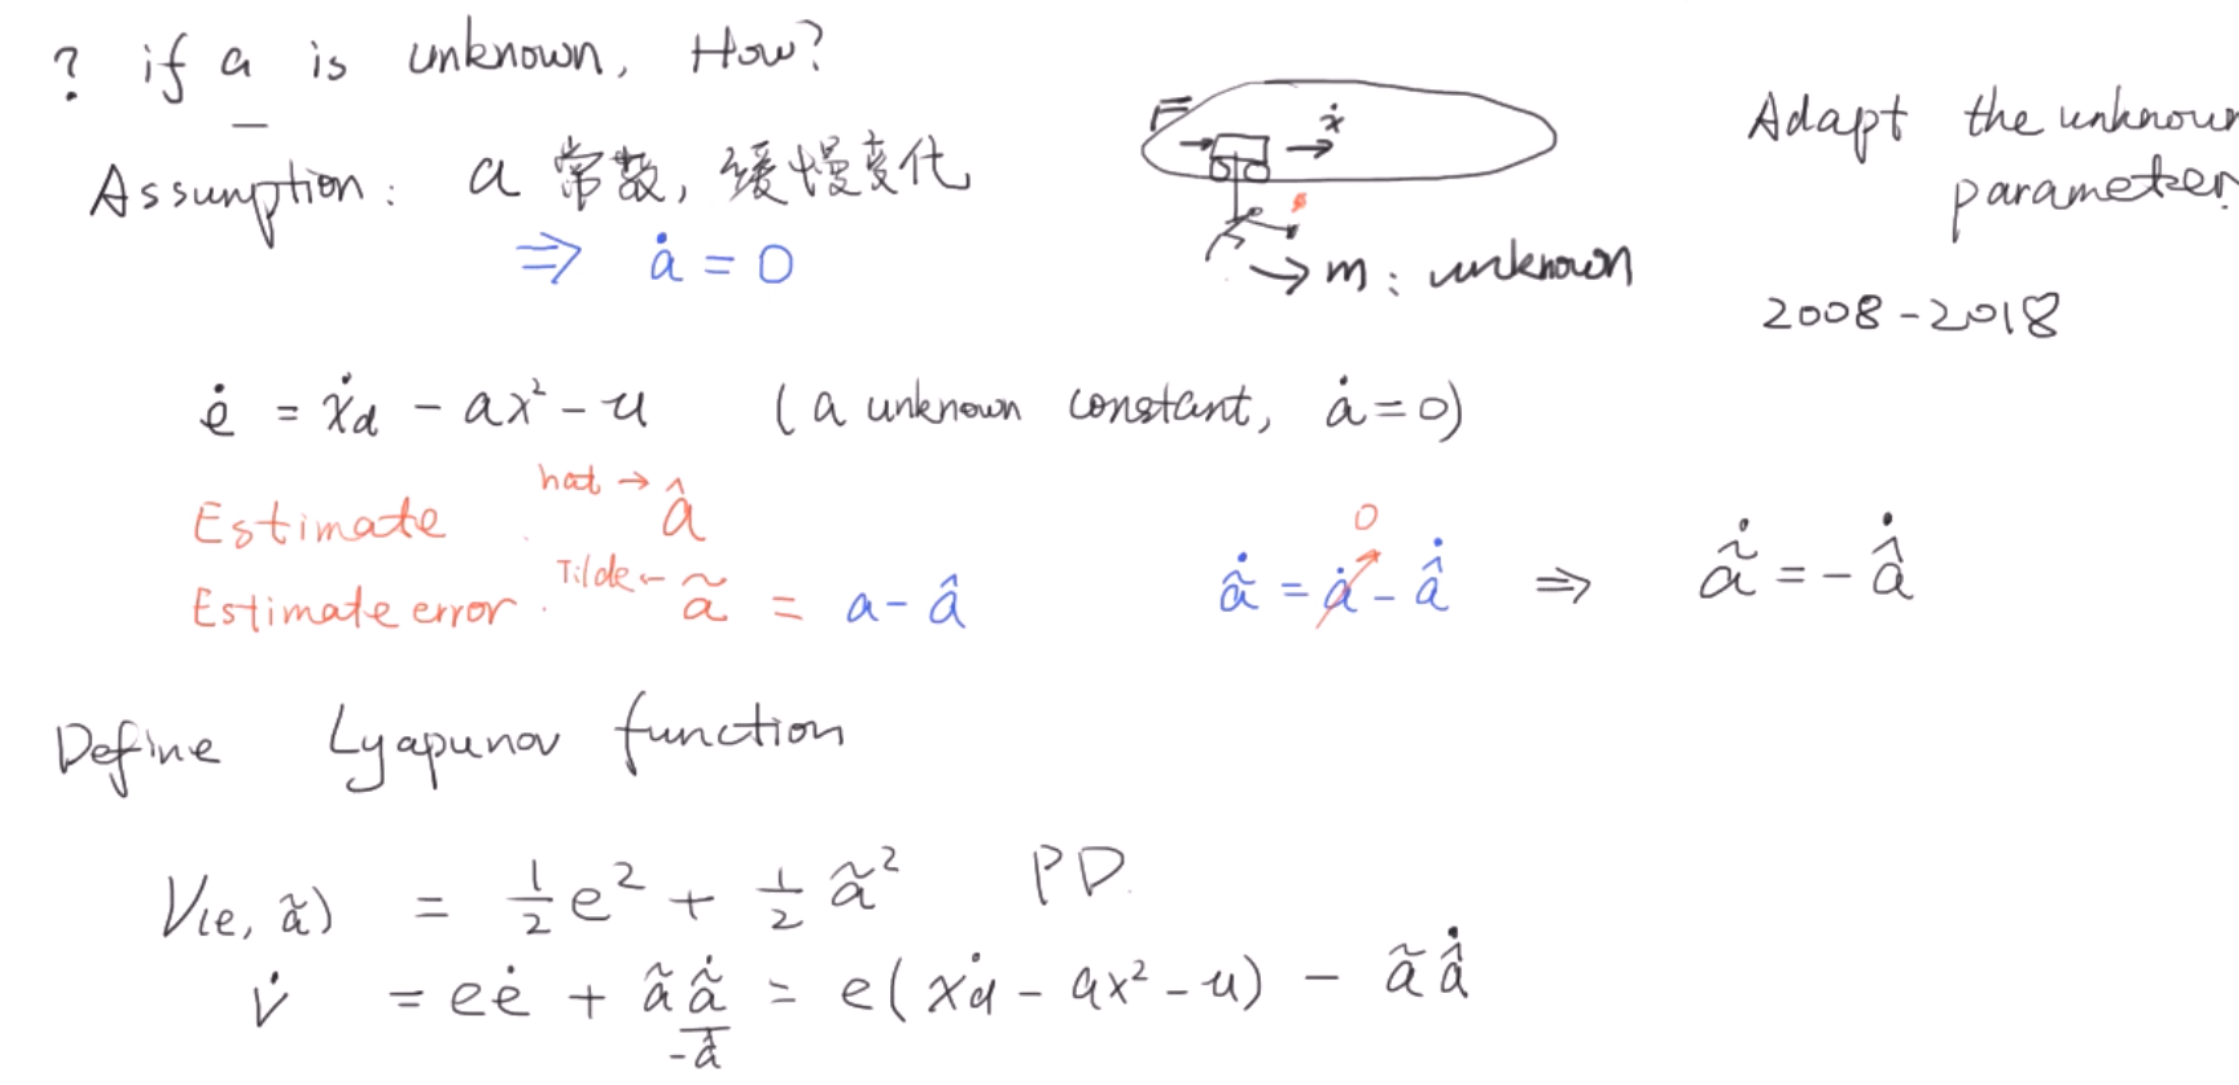 ? if a is unknown, How?
Assumption: a 常数, 缓慢变化
⇒ ȧ = 0
F
ẋ
→ m: unknown
Adapt the unknown
parameter.
2008-2018
ė = ẋd - ax² - u (a unknown constant, ȧ=0)
hat →
Estimate . â
Tilde ←
Estimate error . ã = a - â
0
ã̇ = ȧ - â̇ ⇒ ã̇ = - â̇
Define Lyapunov function
V(e, ã) = ½e² + ½ã² PD.
V̇ = eė + ãã̇ = e(ẋd - ax² - u) - ãâ̇
-â̇